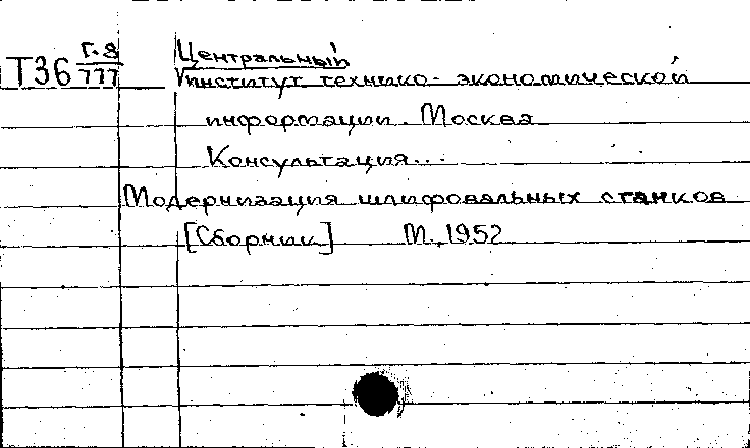 Т36 Г-8/777 Центральный
институт технико-экономической
информации. Москва
Консультация...
Модернизация шлифовальных станков
[Сборник] М., 1952